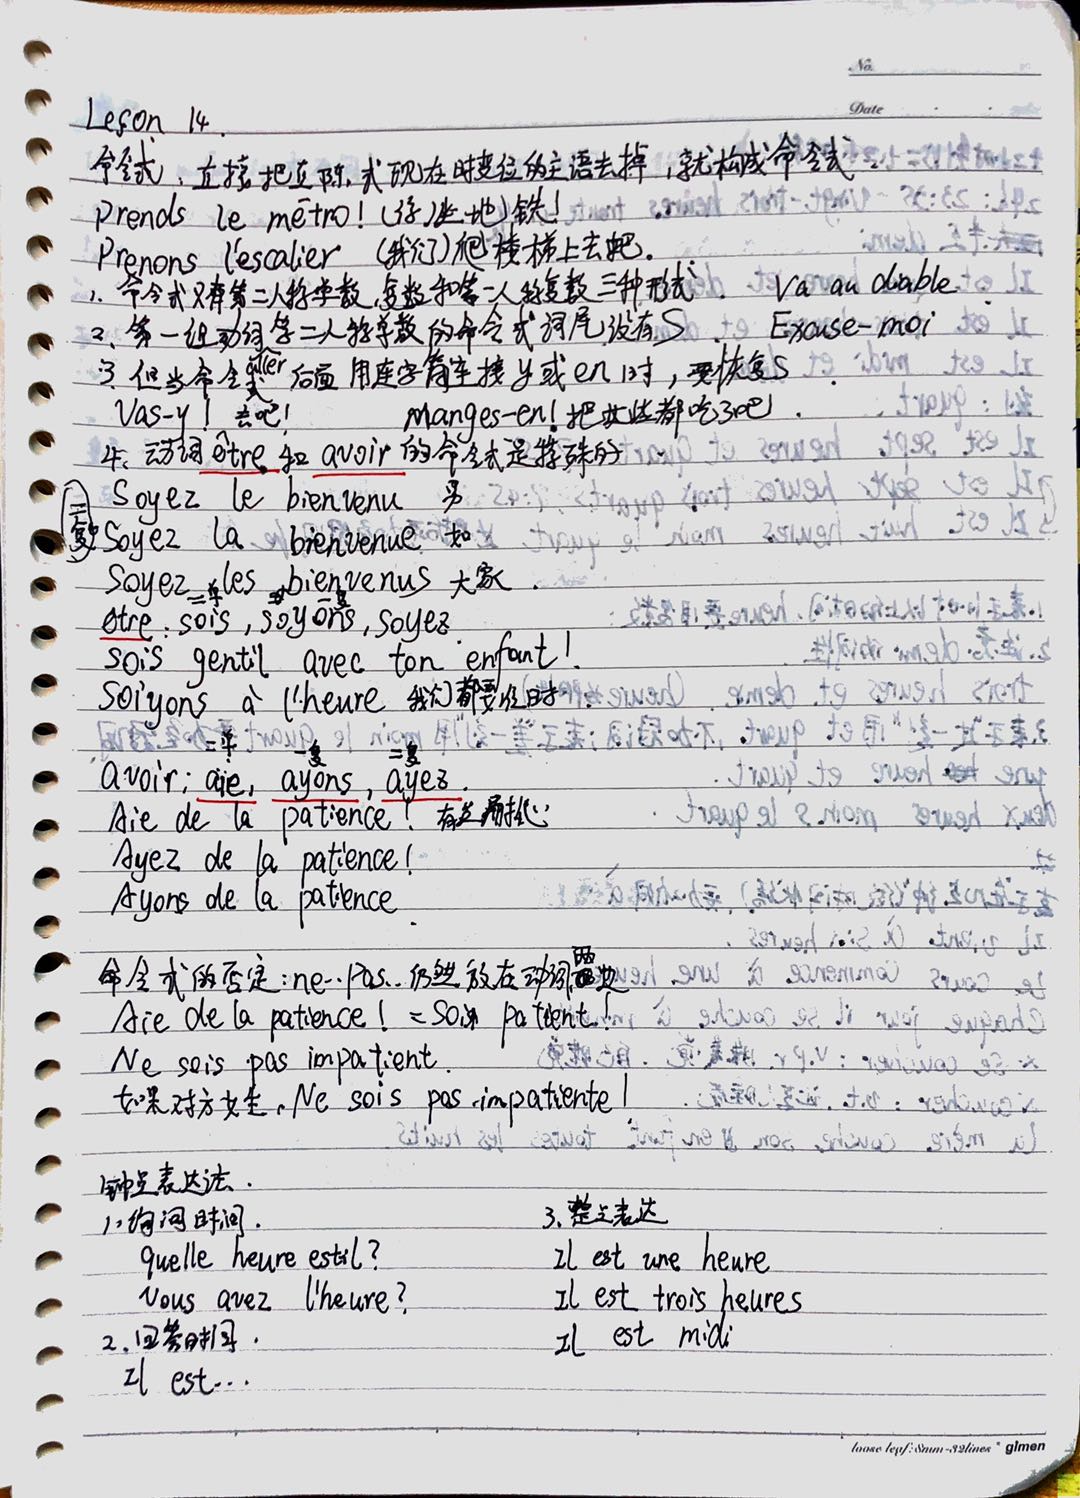 No.
Date
Leson 14.
命令式：直接把直陈式现在时变位的主语去掉，就构成命令式.
Prends le métro! (你)坐地铁!
Prenons l'escalier (我们)爬楼梯上去吧.
1. 命令式只有第二人称单数,复数和第一人称复数三种形式. Va au diable
2. 第一组动词第二人称单数的命令式词尾没有S. Excuse-moi
aller
3. 但当命令式后面用连字符连接y或en时，要恢复S.
Vas-y! 去吧! Manges-en! 把这些都吃了吧.
4. 动词être 和 avoir 的命令式是特殊的
Soyez le bienvenu 男
二复 Soyez la bienvenue 女
Soyez les bienvenus 大家.
二单 一复
être: sois, soyons, soyez
sois gentil avec ton enfant!
soiyons à l'heure 我们都要准时
二单 一复 二复
avoir: aie, ayons, ayez.
Aie de la patience! 有点耐心
Ayez de la patience!
Ayons de la patience
命令式的否定: ne...pas... 仍然放在动词两边
Aie de la patience! = Sois patient!
Ne sois pas impatient.
如果对方女生, Ne sois pas impatiente!
钟点表达法.
1. 询问时间.
quelle heure estil?
Vous avez l'heure?
2. 回答时间.
Il est...
3. 整点表达
Il est une heure
Il est trois heures
Il est midi
loose leaf: 8mm-32lines * glmen